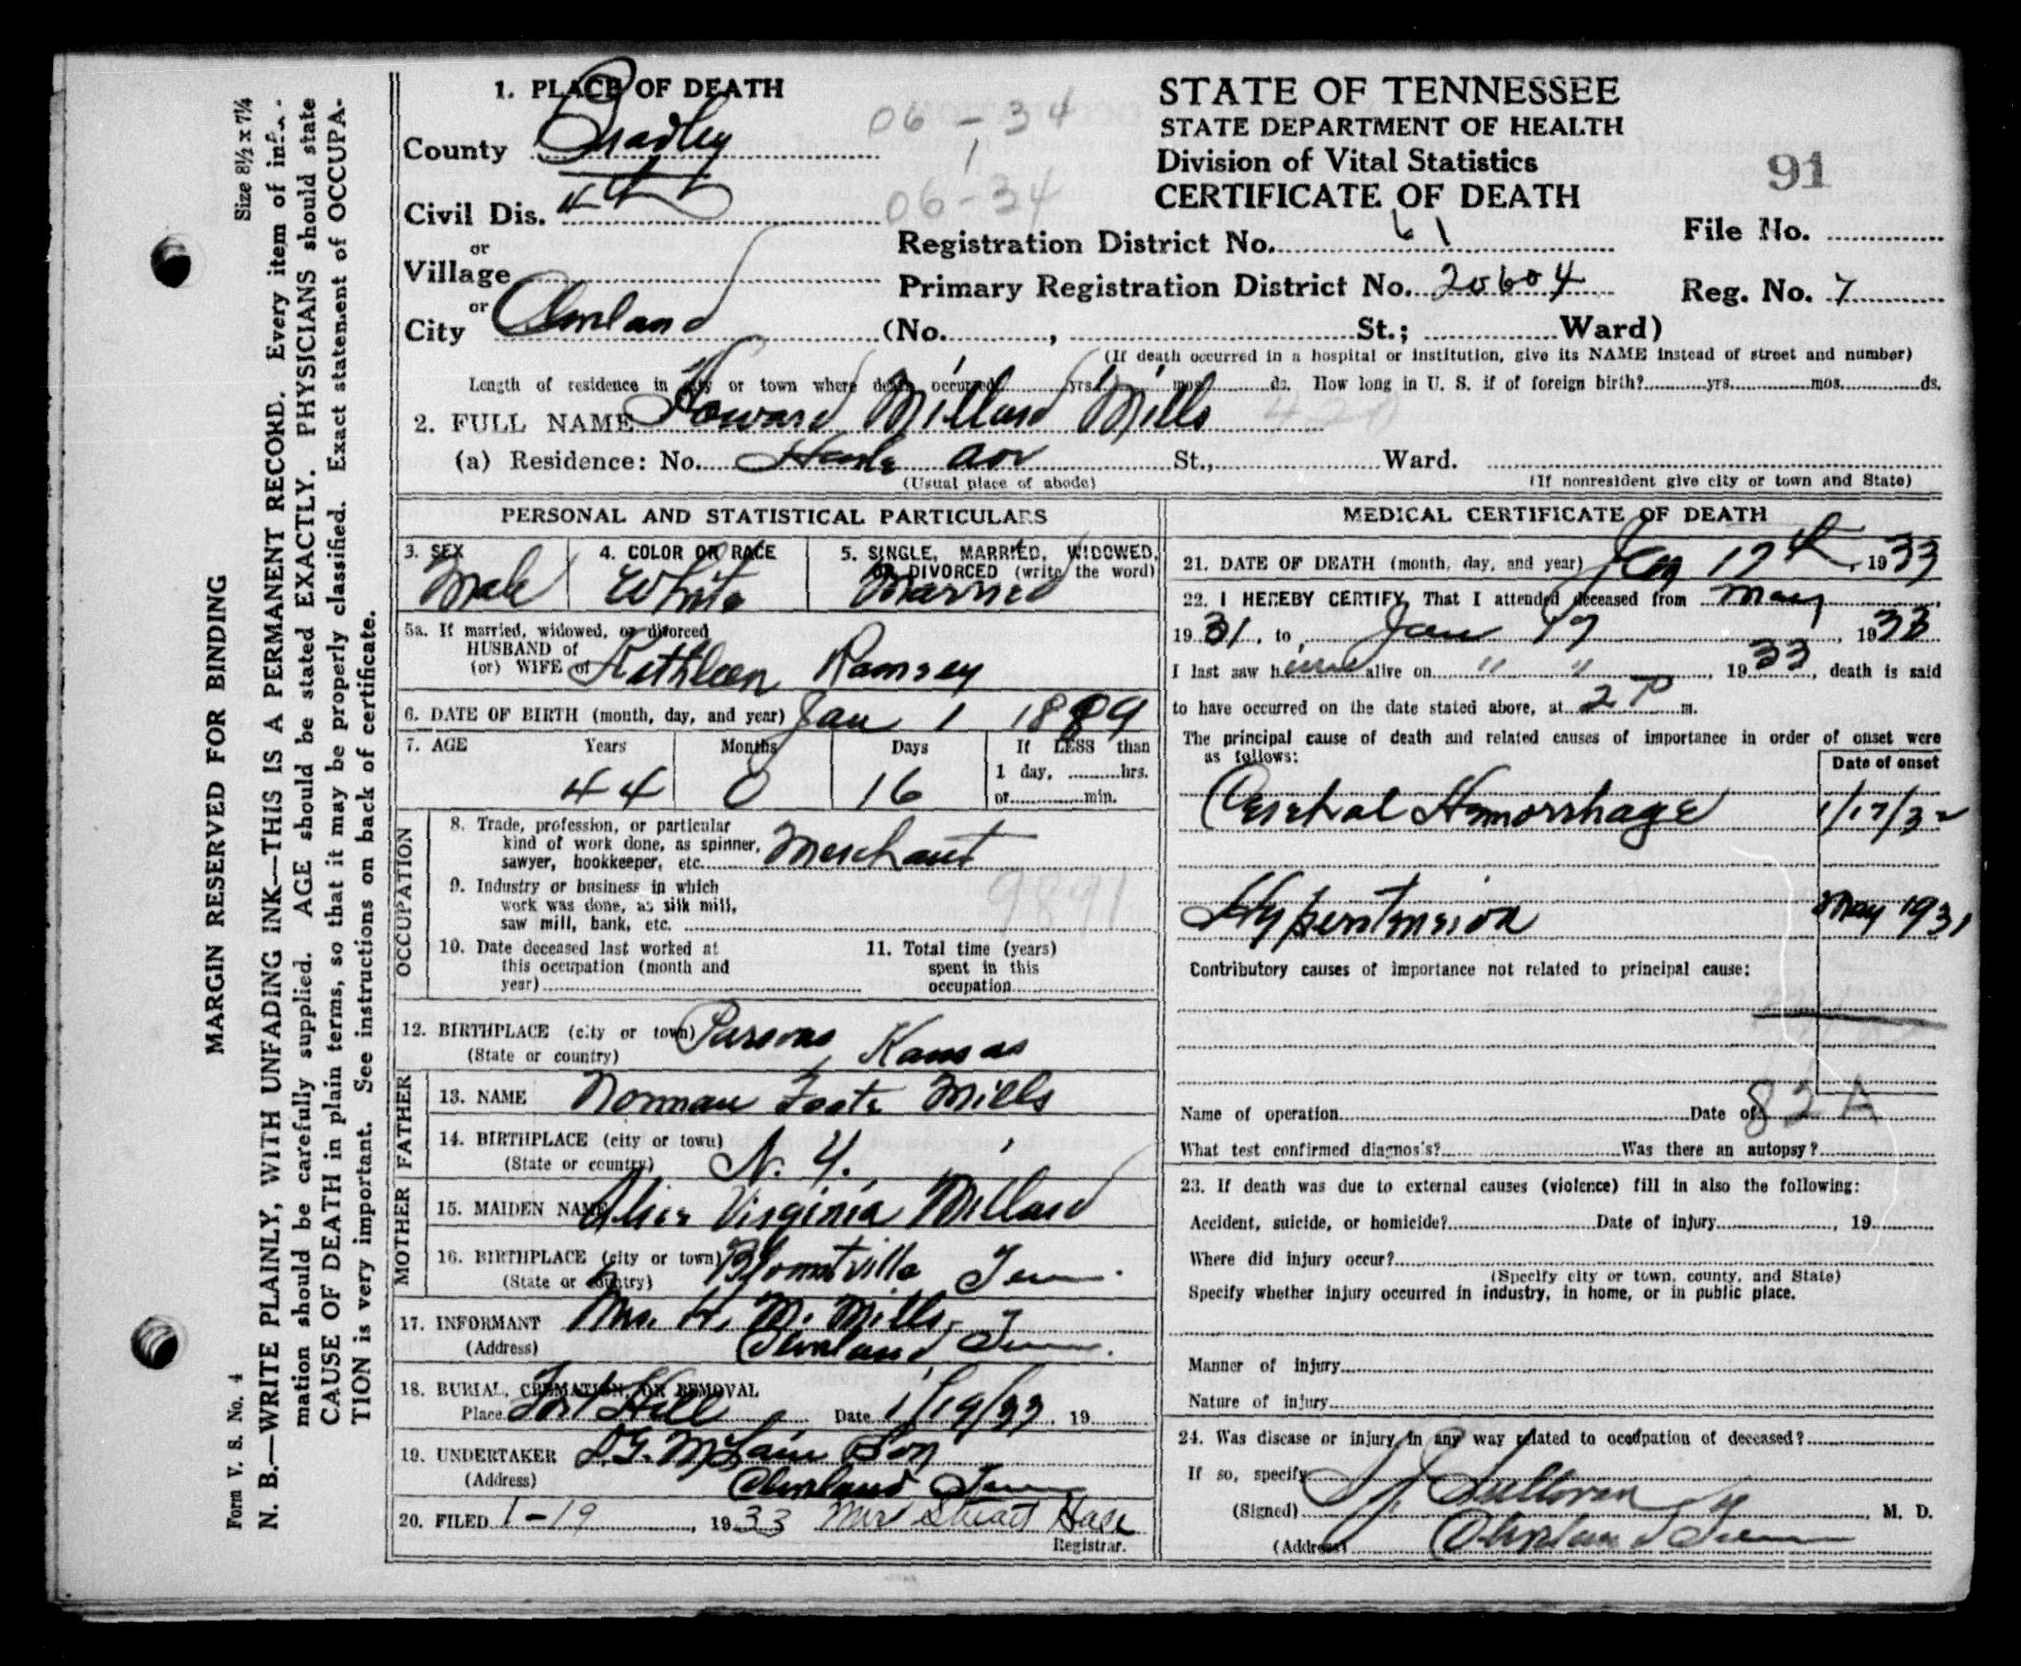 Size 8½ x 7¼
MARGIN RESERVED FOR BINDING
N. B.—WRITE PLAINLY, WITH UNFADING INK—THIS IS A PERMANENT RECORD. Every item of
mation should be carefully supplied. AGE should be stated EXACTLY. PHYSICIANS should state
CAUSE OF DEATH in plain terms, so that it may be properly classified. Exact statement of OCCUPA-
TION is very important. See instructions on back of certificate.
Form V. S. No. 4
1. PLACE OF DEATH
County Bradley
Civil Dis. 4th
or
Village
or
City Cleveland
06-34
1
06-34
STATE OF TENNESSEE
STATE DEPARTMENT OF HEALTH
Division of Vital Statistics
CERTIFICATE OF DEATH
91
Registration District No. 61
File No.
Primary Registration District No. 20604
Reg. No. 7
(No. , St.; Ward)
(If death occurred in a hospital or institution, give its NAME instead of street and number)
Length of residence in city or town where death occurred yrs. mos. ds. How long in U. S. if of foreign birth? yrs. mos. ds.
2. FULL NAME Howard Millard Mills
(a) Residence: No. St., Ward.
(Usual place of abode) (If nonresident give city or town and State)
PERSONAL AND STATISTICAL PARTICULARS
3. SEX Male
4. COLOR OR RACE White
5. SINGLE, MARRIED, WIDOWED, OR DIVORCED (write the word) Married
5a. If married, widowed, or divorced
HUSBAND of
(or) WIFE of Kathleen Ramsey
6. DATE OF BIRTH (month, day, and year) Jan 1 1889
7. AGE Years Months Days If LESS than
1 day, hrs.
44 0 16 or min.
OCCUPATION
8. Trade, profession, or particular
kind of work done, as spinner,
sawyer, bookkeeper, etc. Merchant
9. Industry or business in which
work was done, as silk mill,
saw mill, bank, etc.
9891
10. Date deceased last worked at
this occupation (month and
year)
11. Total time (years)
spent in this
occupation
12. BIRTHPLACE (city or town) Parsons, Kansas
(State or country)
FATHER
13. NAME Norman Foote Mills
14. BIRTHPLACE (city or town)
(State or country) N. Y.
MOTHER
15. MAIDEN NAME Alice Virginia Millard
16. BIRTHPLACE (city or town) Blountville Tenn.
(State or country)
17. INFORMANT Mrs. H. M. Mills
(Address) Cleveland Tenn.
18. BURIAL, CREMATION, OR REMOVAL
Place Fort Hill Date 1/19/33, 19
19. UNDERTAKER D.G. McLain Son
(Address) Cleveland Tenn
20. FILED 1-19, 1933 Mrs Stuart Hall
Registrar.
MEDICAL CERTIFICATE OF DEATH
21. DATE OF DEATH (month, day, and year) Jan 17th, 1933
22. I HEREBY CERTIFY, That I attended deceased from May,
1931, to Jan 17, 1933
I last saw him alive on " ", 1933, death is said
to have occurred on the date stated above, at 2 P m.
The principal cause of death and related causes of importance in order of onset were
as follows:
Date of onset
Cerebral Hemorrhage 1/17/32
Hypertension May 1931
Contributory causes of importance not related to principal cause:
Name of operation Date of
82A
What test confirmed diagnosis? Was there an autopsy?
23. If death was due to external causes (violence) fill in also the following:
Accident, suicide, or homicide? Date of injury , 19
Where did injury occur?
(Specify city or town, county, and State)
Specify whether injury occurred in industry, in home, or in public place.
Manner of injury
Nature of injury
24. Was disease or injury in any way related to occupation of deceased?
If so, specify
(Signed) Sullivan, M. D.
(Address) Cleveland Tenn